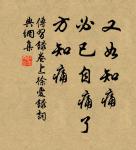 又如知痛
必已自痛了
方知痛
傳習錄卷上徐愛錄詞
典網集